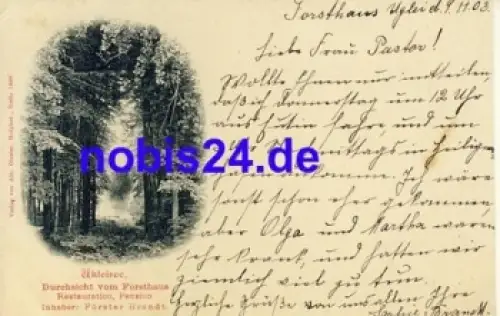 Forsthaus Uglei d. 9.11.03.
Liebe Frau Pastor!
Wollte Ihnen nur mitteilen
daß ich Donnerstag um 12 Uhr
aus Eutin fahre, und um
Ich wäre
sonst schon eher gekommen,
aber Olga und Martha waren
sehr krank, und hatten wir
ziemlich viel zu tun.
Herzliche Grüße von uns allen Ihre
nobis24.de
Ukleisee,
Durchsicht vom Forsthaus
Restauration, Pension
Inhaber: Förster Brandt.
Verlag von